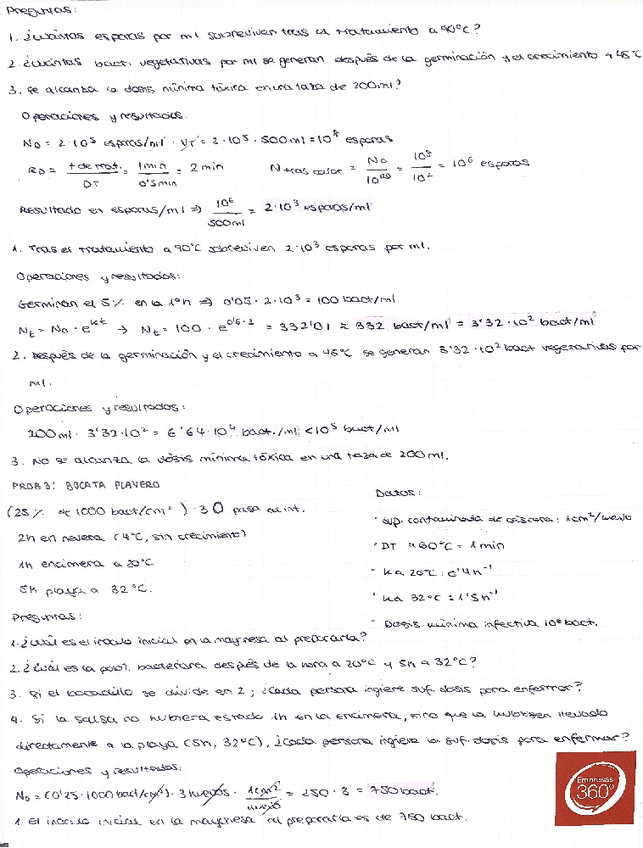 Preguntas:
1. ¿Cuántas esporas por ml sobreviven tras el tratamiento a 90°C?
2. ¿Cuántas bact. vegetativas por ml se generan después de la germinación y el crecimiento a 45°C
3. Se alcanza la dosis mínima tóxica en una taza de 200ml?
Operaciones y resultados.
N0 = 2·10⁵ esporas/ml · VT = 2·10⁵ · 500ml = 10⁸ esporas
RD = t de trat. / DT = 1min / 0'5min = 2 min    N tras calor = N0 / 10^RD = 10⁸ / 10² = 10⁶ esporas
Resultado en esporas/ml => 10⁶ / 500ml = 2·10³ esporas/ml
1. Tras el tratamiento a 90°C sobreviven 2·10³ esporas por ml.
Operaciones y resultados:
Germinan el 5% en la 1ªh => 0'05 · 2·10³ = 100 bact/ml
Nt = N0 · e^kt → Nt = 100 · e^0'6·2 = 332'01 ≈ 332 bact/ml = 3'32·10² bact/ml
2. Después de la germinación y el crecimiento a 45°C se generan 3'32·10² bact vegetativas por
ml.
Operaciones y resultados:
200ml · 3'32·10² = 6'64·10⁴ bact./ml < 10⁵ bact/ml
3. No se alcanza la dosis mínima tóxica en una taza de 200ml.
PROB 3: BOCATA PLAYERO
(25% de 1000 bact/cm²) · 3 0 pasa al int.
2h en nevera (4°C, sin crecimiento)
1h encimera a 20°C
5h playa a 32°C.
Datos:
· Sup. contaminada de cáscara: 1cm²/huevo
· DT a 60°C = 1 min
· K a 20°C: 0'4h⁻¹
· K a 32°C = 1'5h⁻¹
· Dosis mínima infectiva 10⁶ bact.
Preguntas:
1. ¿Cuál es el inóculo inicial en la mayonesa al prepararla?
2. ¿Cuál es la pobl. bacteriana después de la hora a 20°C y 5h a 32°C?
3. Si el bocadillo se divide en 2; ¿Cada persona ingiere suf. dosis para enfermar?
4. Si la salsa no hubiera estado 1h en la encimera, sino que la hubiesen llevado
directamente a la playa (5h, 32°C), ¿Cada persona ingiere la suf. dosis para enfermar?
Operaciones y resultados:
N0 = (0'25 · 1000 bact/cm²) · 3 huevos · 1cm² / huevo = 250 · 3 = 750 bact.
1. El inóculo inicial en la mayonesa al prepararla es de 750 bact.
Empresas
360°